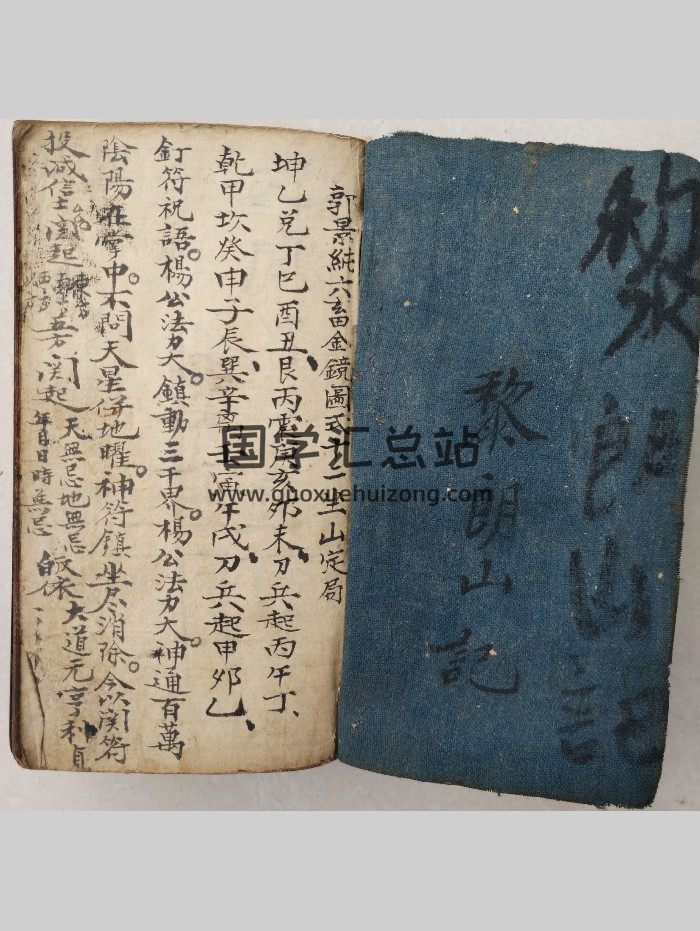 黎朗山記
黎朗山記
郭景純六畜金鏡圖 二 山定局
坤乙兌丁巳酉丑艮丙 寅亥夘未刀兵起丙午丁、
乾甲坎癸申子辰巽辛 壬寅午戌刀兵起甲夘乙、
釘符祝語。楊公法力大。鎮動三千界。楊公法力大。神通百萬
陰陽在掌中。不問天星併地曜。神符鎮 尽消除。今以 符
投 起 起天無忌地無忌
年月日時無忌
大道元亨利貞
国学汇总站
www.guoxuehuizong.com